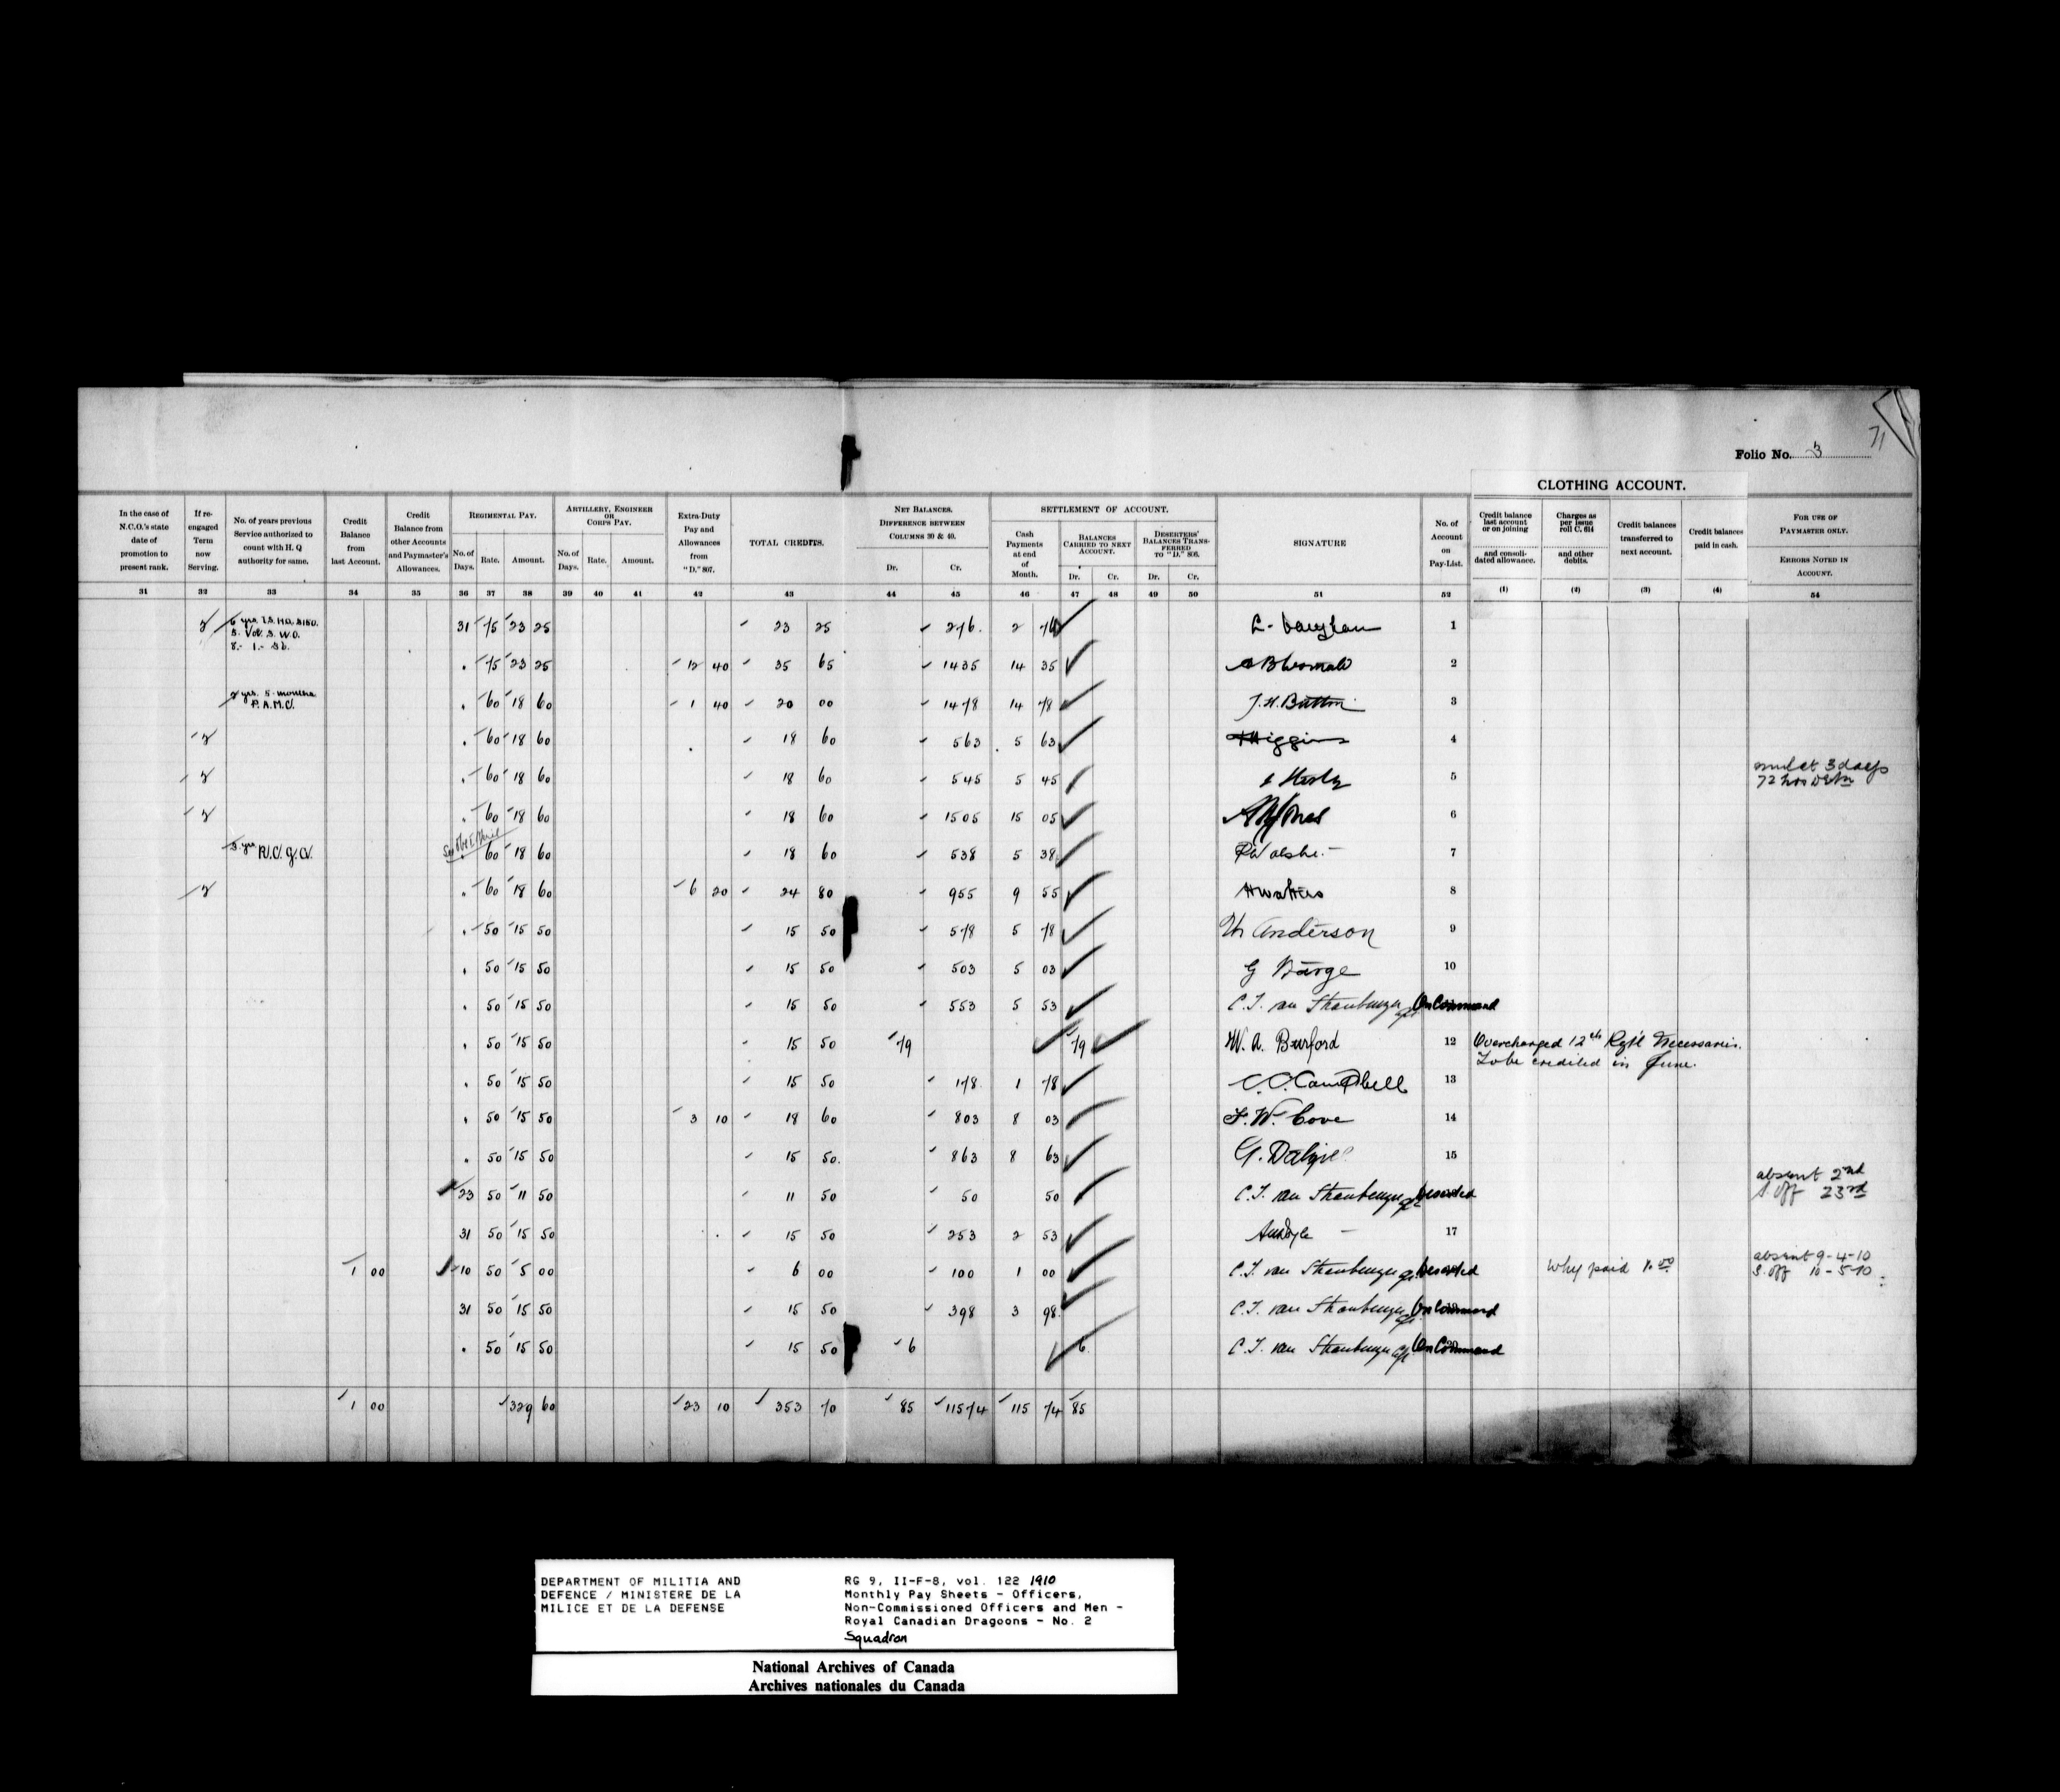 71
Folio No. 3
CLOTHING ACCOUNT.
In the case of N.C.O.'s state date of promotion to present rank.
If re-engaged Term now Serving.
No. of years previous Service authorized to count with H. Q authority for same.
Credit Balance from last Account.
Credit Balance from other Accounts and Paymaster's Allowances.
REGIMENTAL PAY.
No. of Days. Rate. Amount.
ARTILLERY, ENGINEER OR CORPS PAY.
No. of Days. Rate. Amount.
Extra-Duty Pay and Allowances from "D." 807.
TOTAL CREDITS.
NET BALANCES. DIFFERENCE BETWEEN COLUMNS 30 & 40.
Dr. Cr.
SETTLEMENT OF ACCOUNT.
Cash Payments at end of Month.
BALANCES CARRIED TO NEXT ACCOUNT.
Dr. Cr.
DESERTERS' BALANCES TRANSFERRED TO "D." 808.
Dr. Cr.
SIGNATURE
No. of Account on Pay-List.
Credit balance last account or on joining and consolidated allowance.
Charges as per issue roll C. 614 and other debits.
Credit balances transferred to next account.
Credit balances paid in cash.
FOR USE OF PAYMASTER ONLY.
ERRORS NOTED IN ACCOUNT.
31 32 33 34 35 36 37 38 39 40 41 42 43 44 45 46 47 48 49 50 51 52 (1) (2) (3) (4) 54
2 6 yrs 31 75 23 25 23 25 276 2 76 L. Vaughan 1
S. Vol. S. W.O.
8. - 1. - 36.
75 23 25 12 40 35 65 1435 14 35 2
2 yrs. 5 months 60 18 60 1 40 20 00 1478 14 78 J. H. Button 3
P.A.M.C.
2 60 18 60 18 60 563 5 63 Higgins 4
2 60 18 60 18 60 545 5 45 5 3 days
72 hrs Detn
2 60 18 60 18 60 1505 15 05 6
5 yrs R.C.G.A. 60 18 60 18 60 538 5 38 R Walshe 7
2 60 18 60 6 20 24 80 955 9 55 H Watters 8
50 15 50 15 50 578 5 78 Anderson 9
50 15 50 15 50 503 5 03 G Barge 10
50 15 50 15 50 553 5 53 C. T. van Straubenzee Capt On Command
50 15 50 15 50 79 79 W. A. Burford 12 Overcharged 12 cts Reg'l Necessaries.
To be credited in June.
50 15 50 15 50 178 1 78 C. C. Campbell 13
50 15 50 3 10 18 60 803 8 03 F. W. Cove 14
50 15 50 15 50. 863 8 63 G. 15
23 50 11 50 11 50 50 50 C. T. van Straubenzee Capt Deserted absent 2nd
S. off 23rd
31 50 15 50 15 50 253 2 53 17
1 00 10 50 5 00 6 00 100 1 00 C. T. van Straubenzee Capt Deserted Why paid 1.00 absent 9-4-10
S. off 10-5-10
31 50 15 50 15 50 398 3 98 C. T. van Straubenzee Capt On Command
50 15 50 15 50 6 6 C. T. van Straubenzee Capt On Command
1 00 329 60 23 10 353 70 85 11574 115 74 85
DEPARTMENT OF MILITIA AND
DEFENCE / MINISTERE DE LA
MILICE ET DE LA DEFENSE
RG 9, II-F-8, vol. 122 1910
Monthly Pay Sheets - Officers,
Non-Commissioned Officers and Men -
Royal Canadian Dragoons - No. 2
Squadron
National Archives of Canada
Archives nationales du Canada